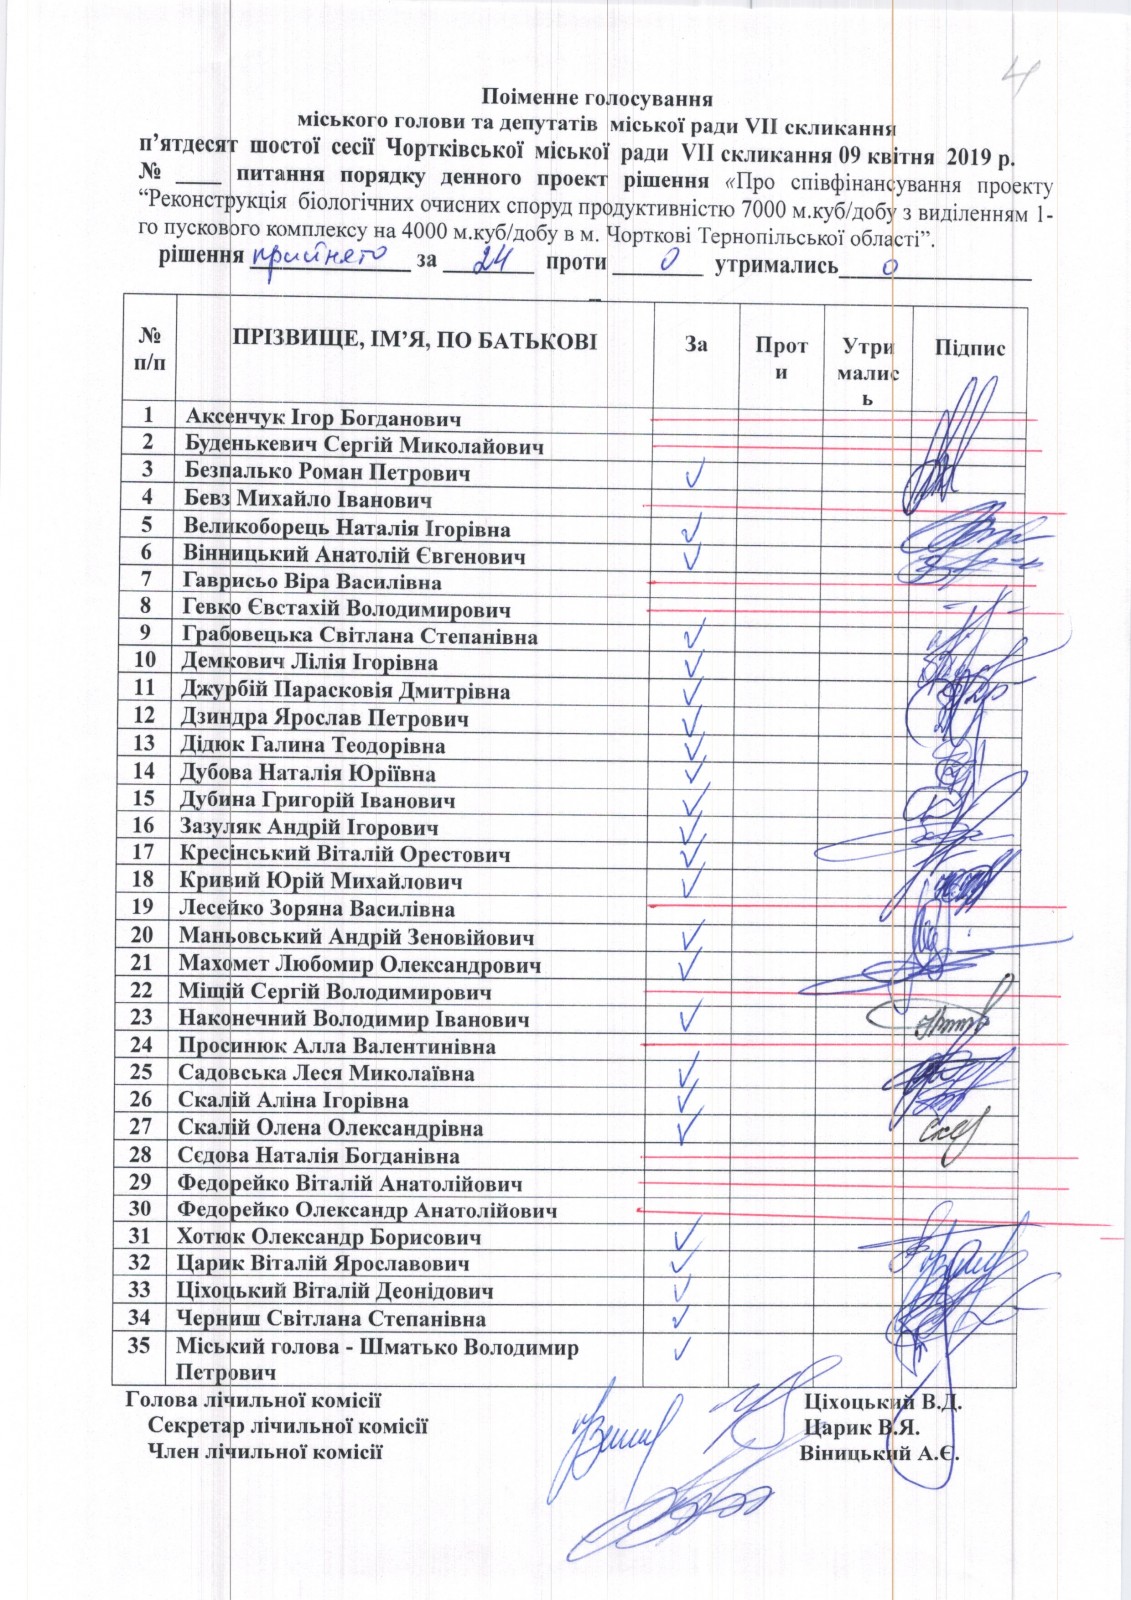 4
Поіменне голосування
міського голови та депутатів міської ради VII скликання
п’ятдесят шостої сесії Чортківської міської ради VII скликання 09 квітня 2019 р.
№ ____ питання порядку денного проект рішення «Про співфінансування проекту
“Реконструкція біологічних очисних споруд продуктивністю 7000 м.куб/добу з виділенням 1-
го пускового комплексу на 4000 м.куб/добу в м. Чорткові Тернопільської області”.
рішення прийнято за 24 проти 0 утримались 0
№ п/п ПРІЗВИЩЕ, ІМ’Я, ПО БАТЬКОВІ За Проти Утрималисьь Підпис
1 Аксенчук Ігор Богданович
2 Буденькевич Сергій Миколайович
3 Безпалько Роман Петрович ✓
4 Бевз Михайло Іванович
5 Великоборець Наталія Ігорівна ✓
6 Вінницький Анатолій Євгенович ✓
7 Гаврисьо Віра Василівна
8 Гевко Євстахій Володимирович
9 Грабовецька Світлана Степанівна ✓
10 Демкович Лілія Ігорівна ✓
11 Джурбій Парасковія Дмитрівна ✓
12 Дзиндра Ярослав Петрович ✓
13 Дідюк Галина Теодорівна ✓
14 Дубова Наталія Юріївна ✓
15 Дубина Григорій Іванович ✓
16 Зазуляк Андрій Ігорович ✓
17 Кресінський Віталій Орестович ✓
18 Кривий Юрій Михайлович ✓
19 Лесейко Зоряна Василівна
20 Маньовський Андрій Зеновійович ✓
21 Махомет Любомир Олександрович ✓
22 Міщій Сергій Володимирович
23 Наконечний Володимир Іванович ✓
24 Просинюк Алла Валентинівна
25 Садовська Леся Миколаївна ✓
26 Скалій Аліна Ігорівна ✓
27 Скалій Олена Олександрівна ✓
28 Сєдова Наталія Богданівна
29 Федорейко Віталій Анатолійович
30 Федорейко Олександр Анатолійович
31 Хотюк Олександр Борисович ✓
32 Царик Віталій Ярославович ✓
33 Ціхоцький Віталій Деонідович ✓
34 Черниш Світлана Степанівна ✓
35 Міський голова - Шматько Володимир ✓
Петрович
Голова лічильної комісії Ціхоцький В.Д.
Секретар лічильної комісії Царик В.Я.
Член лічильної комісії Віницький А.Є.